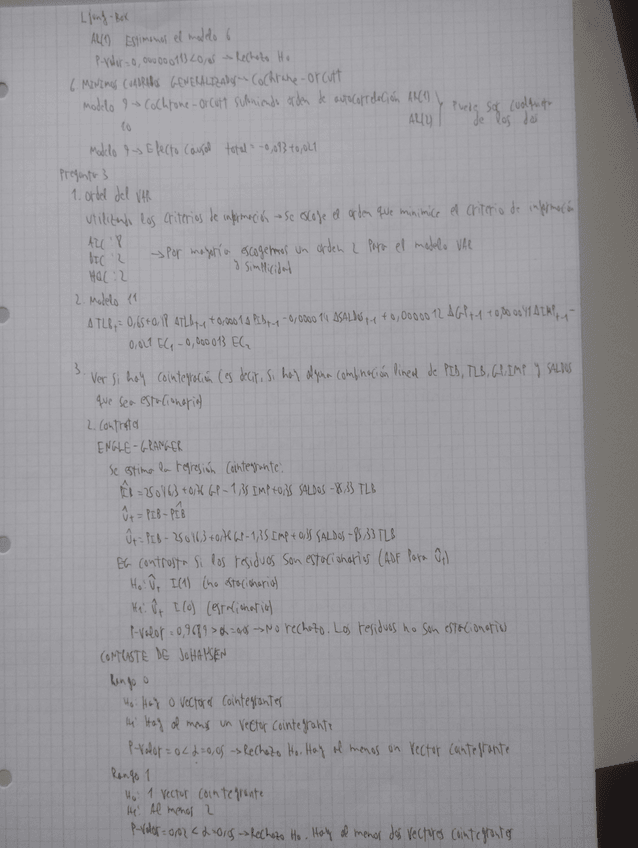 Ljung-Box
AR(1) Estimamos el modelo 6
P-valor=0,00000013<0,05 → Rechazo H₀
6. MINIMOS CUADRADOS GENERALIZADOS → Cochrane-Orcutt
modelo 9 → Cochrane-Orcutt asumiendo orden de autocorrelación AR(1)
AR(2) } Puede ser cualquiera de los dos
10
Modelo 9 → Efecto causal total = -0,093+0,021
Pregunta 3
1. Orden del VAR
Utilizando los criterios de información → se escoge el orden que minimice el criterio de información
AIC: 8
BIC: 2 → Por mayoría escogeremos un orden 2 para el modelo VAR
HQC: 2 y simplicidad
2. Modelo 11
ΔTLB_t = 0,65+0,18 ΔTLB_t-1 + 0,0001 ΔPIB_t-1 - 0,000014 ΔSALDOS_t-1 + 0,0000012 ΔGP_t-1 + 0,000045 ΔIMP_t-1 -
0,021 EC₁ - 0,000013 EC₂
3. Ver si hay cointegración (es decir, si hay alguna combinación lineal de PIB, TLB, GP, IMP y SALDOS
que sea estacionaria)
2. Contrastes
ENGLE-GRANGER
Se estima la regresión cointegrante:
P̂IB = 25046,3 + 0,76 GP - 1,35 IMP + 0,35 SALDOS - 85,33 TLB
Û_t = PIB - P̂IB
Û_t = PIB - 25046,3 + 0,76 GP - 1,35 IMP + 0,35 SALDOS - 85,33 TLB
EG contrasta si los residuos son estacionarios (ADF para Û_t)
H₀: Û_t I(1) (no estacionario)
H₁: Û_t I(0) (estacionario)
P-valor = 0,9689 > α = 0,05 → No rechazo. Los residuos no son estacionarios
CONTRASTE DE JOHANSEN
Rango 0
H₀: Hay 0 vectores cointegrantes
H₁: Hay al menos un vector cointegrante
P-valor = 0 < α = 0,05 → Rechazo H₀. Hay al menos un vector cointegrante
Rango 1
H₀: 1 vector cointegrante
H₁: Al menos 2
P-valor = 0,02 < α = 0,05 → Rechazo H₀. Hay al menos dos vectores cointegrantes